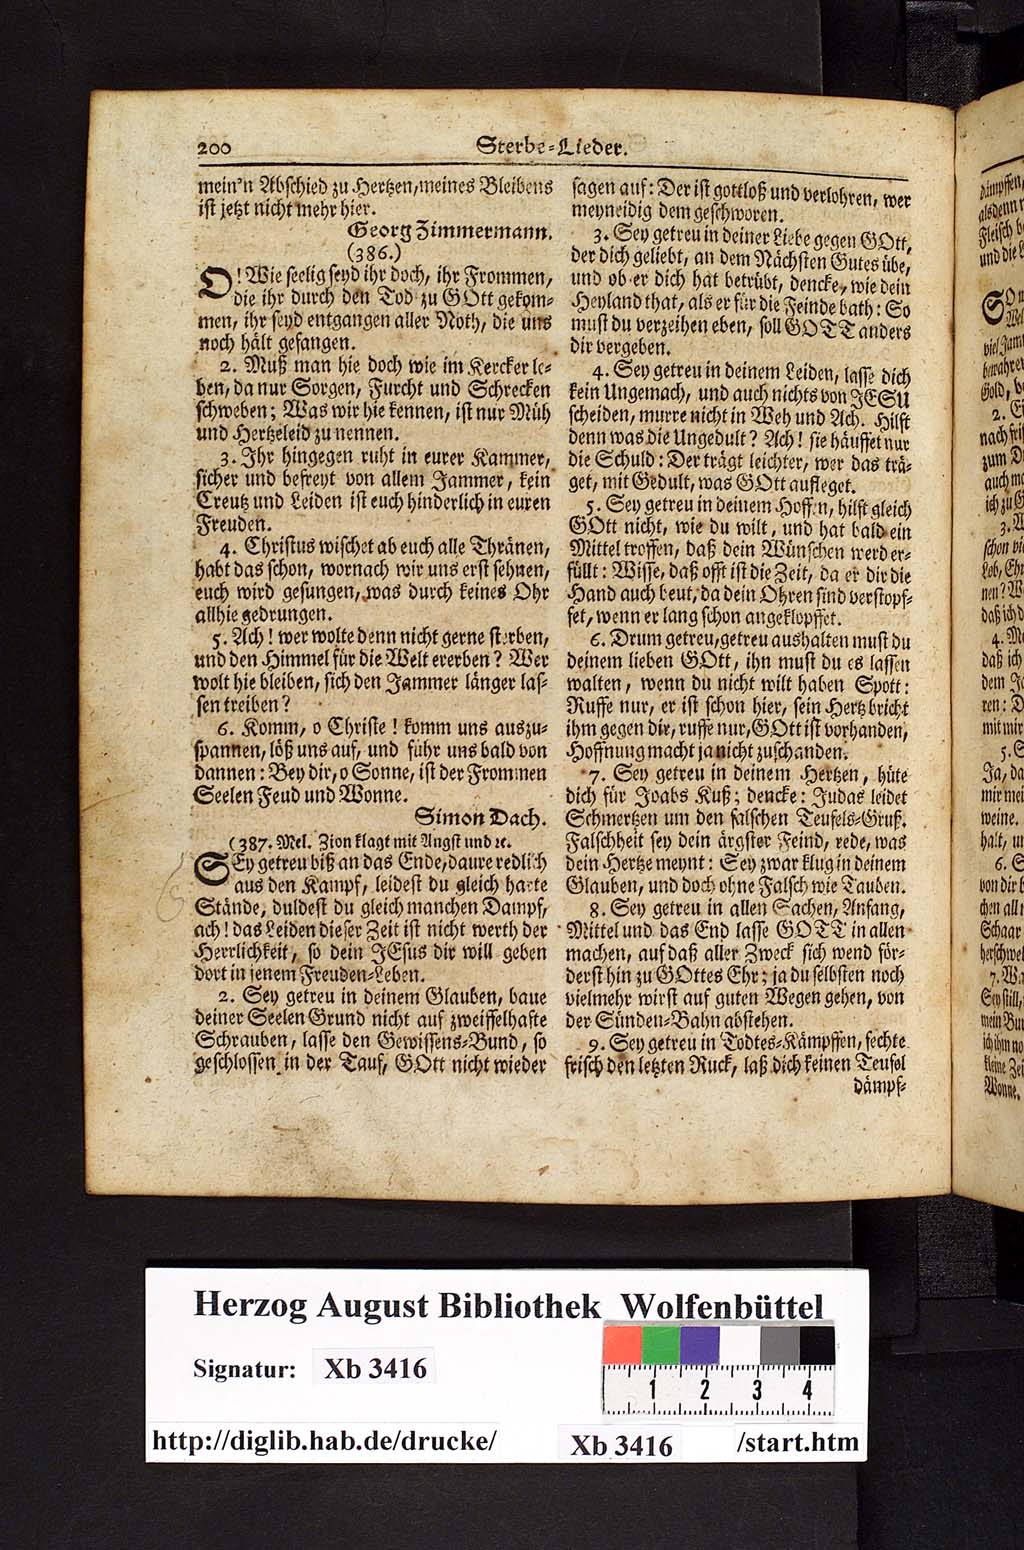 200
Sterbe-Lieder.
mein'n Abschied zu Hertzen, meines Bleibens
ist jetzt nicht mehr hier.
Georg Zimmermann.
(386.)
O! Wie seelig seyd ihr doch, ihr Frommen,
die ihr durch den Tod zu GOtt gekom-
men, ihr seyd entgangen aller Noth, die uns
noch hält gefangen.
2. Muß man hie doch wie im Kercker le-
ben, da nur Sorgen, Furcht und Schrecken
schweben; Was wir hie kennen, ist nur Müh
und Hertzeleid zu nennen.
3. Ihr hingegen ruht in eurer Kammer,
sicher und befreyt von allem Jammer, kein
Creutz und Leiden ist euch hinderlich in euren
Freuden.
4. Christus wischet ab euch alle Thränen,
habt das schon, wornach wir uns erst sehnen,
euch wird gesungen, was durch keines Ohr
allhie gedrungen.
5. Ach! wer wolte denn nicht gerne sterben,
und den Himmel für die Welt ererben? Wer
wolt hie bleiben, sich den Jammer länger las-
sen treiben?
6. Komm, o Christe! komm uns auszu-
spannen, löß uns auf, und führ uns bald von
dannen: Bey dir, o Sonne, ist der Frommen
Seelen Feud und Wonne.
Simon Dach.
(387. Mel. Zion klagt mit Angst und ꝛc.
SEy getreu biß an das Ende, daure redlich
aus den Kampf, leidest du gleich harte
Stände, duldest du gleich manchen Dampf,
ach! das Leiden dieser Zeit ist nicht werth der
Herrlichkeit, so dein JEsus dir will geben
dort in jenem Freuden-Leben.
2. Sey getreu in deinem Glauben, baue
deiner Seelen Grund nicht auf zweiffelhafte
Schrauben, lasse den Gewissens-Bund, so
geschlossen in der Tauf, GOtt nicht wieder
sagen auf: Der ist gottloß und verlohren, wer
meyneidig dem geschworen.
3. Sey getreu in deiner Liebe gegen GOtt,
der dich geliebt, an dem Nächsten Gutes übe,
und ob er dich hat betrübt, dencke, wie dein
Heyland that, als er für die Feinde bath: So
must du verzeihen eben, soll GOTT anders
dir vergeben.
4. Sey getreu in deinem Leiden, lasse dich
kein Ungemach, und auch nichts von JESU
scheiden, murre nicht in Weh und Ach. Hilft
denn was die Ungedult? Ach! sie häuffet nur
die Schuld: Der trägt leichter, wer das trä-
get, mit Gedult, was GOtt aufleget.
5. Sey getreu in deinem Hoffen, hilft gleich
GOtt nicht, wie du wilt, und hat bald ein
Mittel troffen, daß dein Wünschen werd er-
füllt: Wisse, daß offt ist die Zeit, da er dir die
Hand auch beut, da dein Ohren sind verstopf-
fet, wenn er lang schon angeklopffet.
6. Drum getreu, getreu aushalten must du
deinem lieben GOtt, ihn must du es lassen
walten, wenn du nicht wilt haben Spott:
Ruffe nur, er ist schon hier, sein Hertz bricht
ihm gegen dir, ruffe nur, GOtt ist vorhanden,
Hoffnung macht ja nicht zuschanden.
7. Sey getreu in deinem Hertzen, hüte
dich für Joabs Kuß; dencke: Judas leidet
Schmertzen um den falschen Teufels-Gruß.
Falschheit sey dein ärgster Feind, rede, was
dein Hertze meynt: Sey zwar klug in deinem
Glauben, und doch ohne Falsch wie Tauben.
8. Sey getreu in allen Sachen, Anfang,
Mittel und das End lasse GOTT in allen
machen, auf daß aller Zweck sich wend för-
derst hin zu GOttes Ehr; ja du selbsten noch
vielmehr wirst auf guten Wegen gehen, von
der Sünden-Bahn abstehen.
9. Sey getreu in Todtes-Kämpffen, fechte
frisch den letzten Ruck, laß dich keinen Teufel
dämpf-
Herzog August Bibliothek Wolfenbüttel
Signatur: Xb 3416
1 2 3 4
http://diglib.hab.de/drucke/ Xb 3416 /start.htm